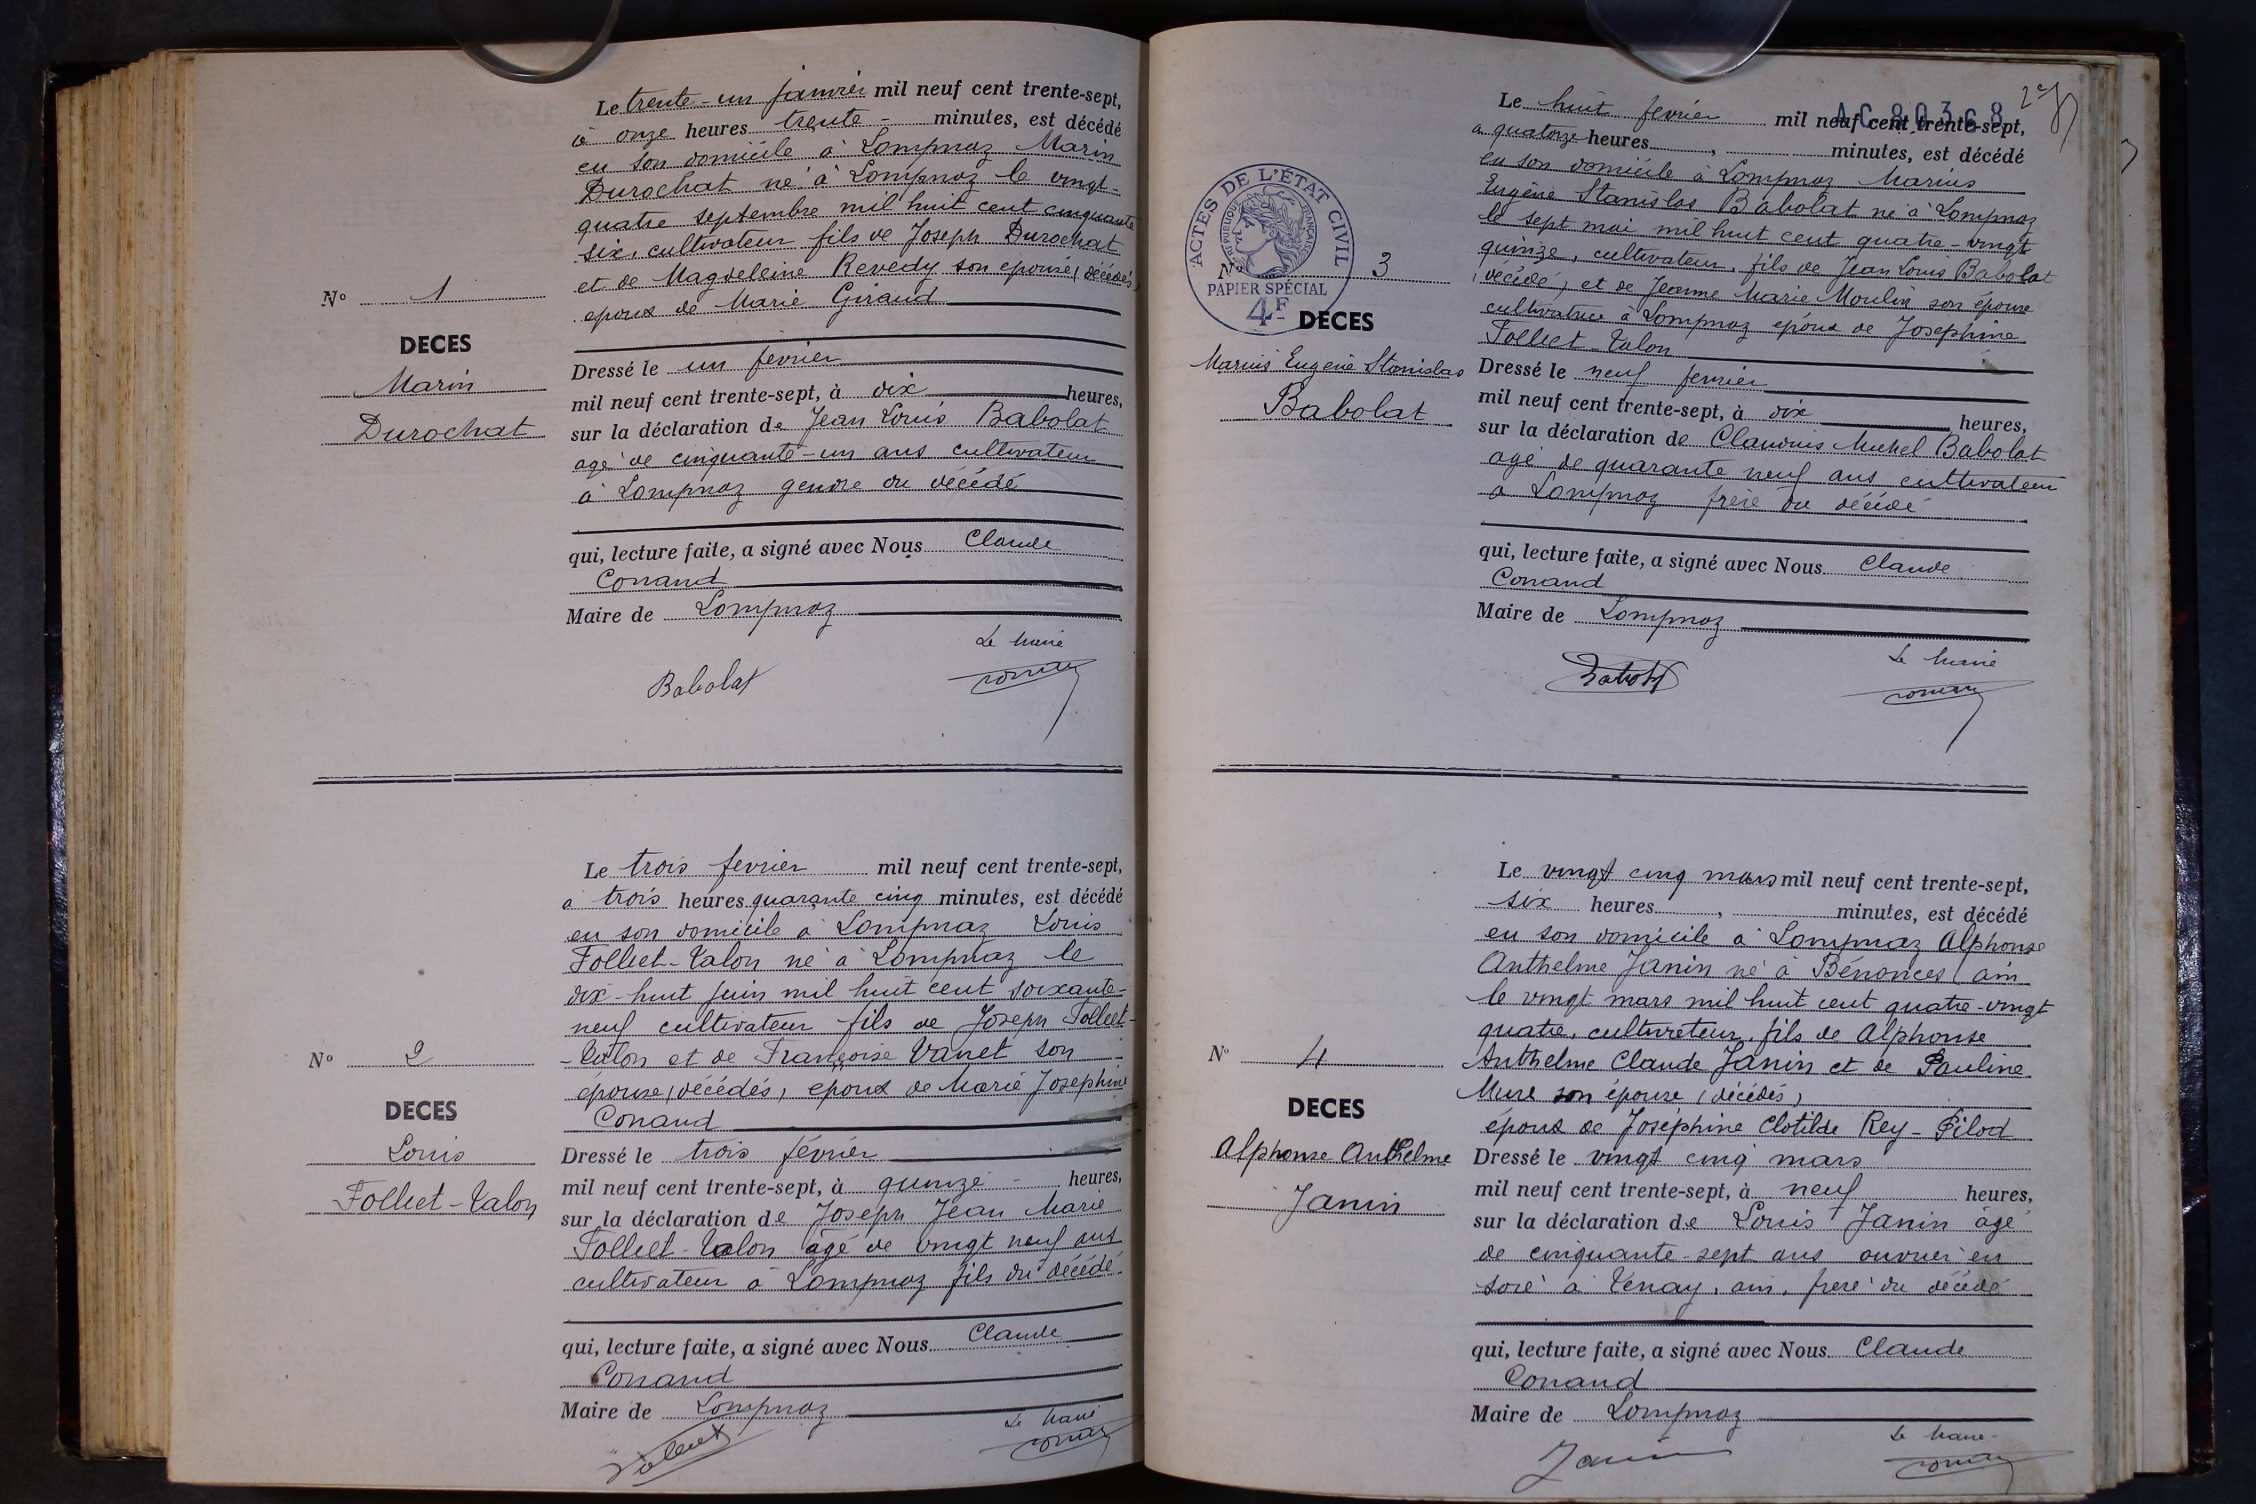 Le trente-un janvier mil neuf cent trente-sept,
à onze heures trente - minutes, est décédé
en son domicile à Lompnaz Marin
Durochat né à Lompnaz le vingt-
quatre septembre mil huit cent cinquante
six, cultivateur fils de Joseph Durochat
et de Magdeleine Revedy son epouse (décédés)
epoux de Marie Giraud
N° 1
DECES
Marin
Durochat
Dressé le un fevrier
mil neuf cent trente-sept, à dix heures,
sur la déclaration de Jean Louis Babolat
agé de cinquante-un ans cultivateur
à Lompnaz gendre du décédé
qui, lecture faite, a signé avec Nous Claude
Conand
Maire de Lompnaz
Le Maire
Babolat
Le trois fevrier mil neuf cent trente-sept,
à trois heures quarante cinq minutes, est décédé
en son domicile à Lompnaz Louis
Folliet-Talon né à Lompnaz le
dix-huit juin mil huit cent soixante-
neuf cultivateur fils de Joseph Folliet-
-Talon et de Françoise Vanet son
épouse (décédés) epoux de Marie Josephine
Conand
N° 2
DECES
Louis
Folliet-Talon
Dressé le trois février
mil neuf cent trente-sept, à quinze - heures,
sur la déclaration de Joseph Jean Marie
Folliet-Talon âgé de vingt neuf ans
cultivateur à Lompnaz fils du décédé.
qui, lecture faite, a signé avec Nous Claude
Conand
Maire de Lompnaz
Le Maire
Folliet
AC 80368
Le huit fevrier mil neuf cent trente-sept,
a quatorze heures , minutes, est décédé
en son domicile à Lompnaz Marius
Eugène Stanislas Babolat né à Lompnaz
le sept mai mil huit cent quatre-vingt
quinze, cultivateur, fils de Jean Louis Babolat
(décédé) et de Jeanne Marie Moulin son épouse
cultivatrice à Lompnaz epoux de Josephine
Folliet-Talon
ACTES DE L'ÉTAT CIVIL
RÉPUBLIQUE FRANÇAISE
PAPIER SPÉCIAL
4F
N° 3
DECES
Marius Eugène Stanislas
Babolat
Dressé le neuf fevrier
mil neuf cent trente-sept, à dix heures,
sur la déclaration de Claudius Michel Babolat
agé de quarante neuf ans cultivateur
a Lompnaz frere du décédé
qui, lecture faite, a signé avec Nous Claude
Conand
Maire de Lompnaz
Le Maire
Babolat
Le vingt cinq mars mil neuf cent trente-sept,
six heures , minutes, est décédé
en son domicile à Lompnaz Alphonse
Anthelme Janin né à Bénonces (ain
le vingt mars mil huit cent quatre-vingt
quatre, cultivateur, fils de Alphonse
Anthelme Claude Janin et de Pauline
Mure son épouse (décédés)
époux de Joséphine Clotilde Rey-Pilod
N° 4
DECES
Alphonse Anthelme
Janin
Dressé le vingt cinq mars
mil neuf cent trente-sept, à neuf heures,
sur la déclaration de Louis Janin âgé
de cinquante-sept ans ouvrier en
soie à Tenay, ain, frere du décédé
qui, lecture faite, a signé avec Nous Claude
Conand
Maire de Lompnaz
Le Maire
Janin